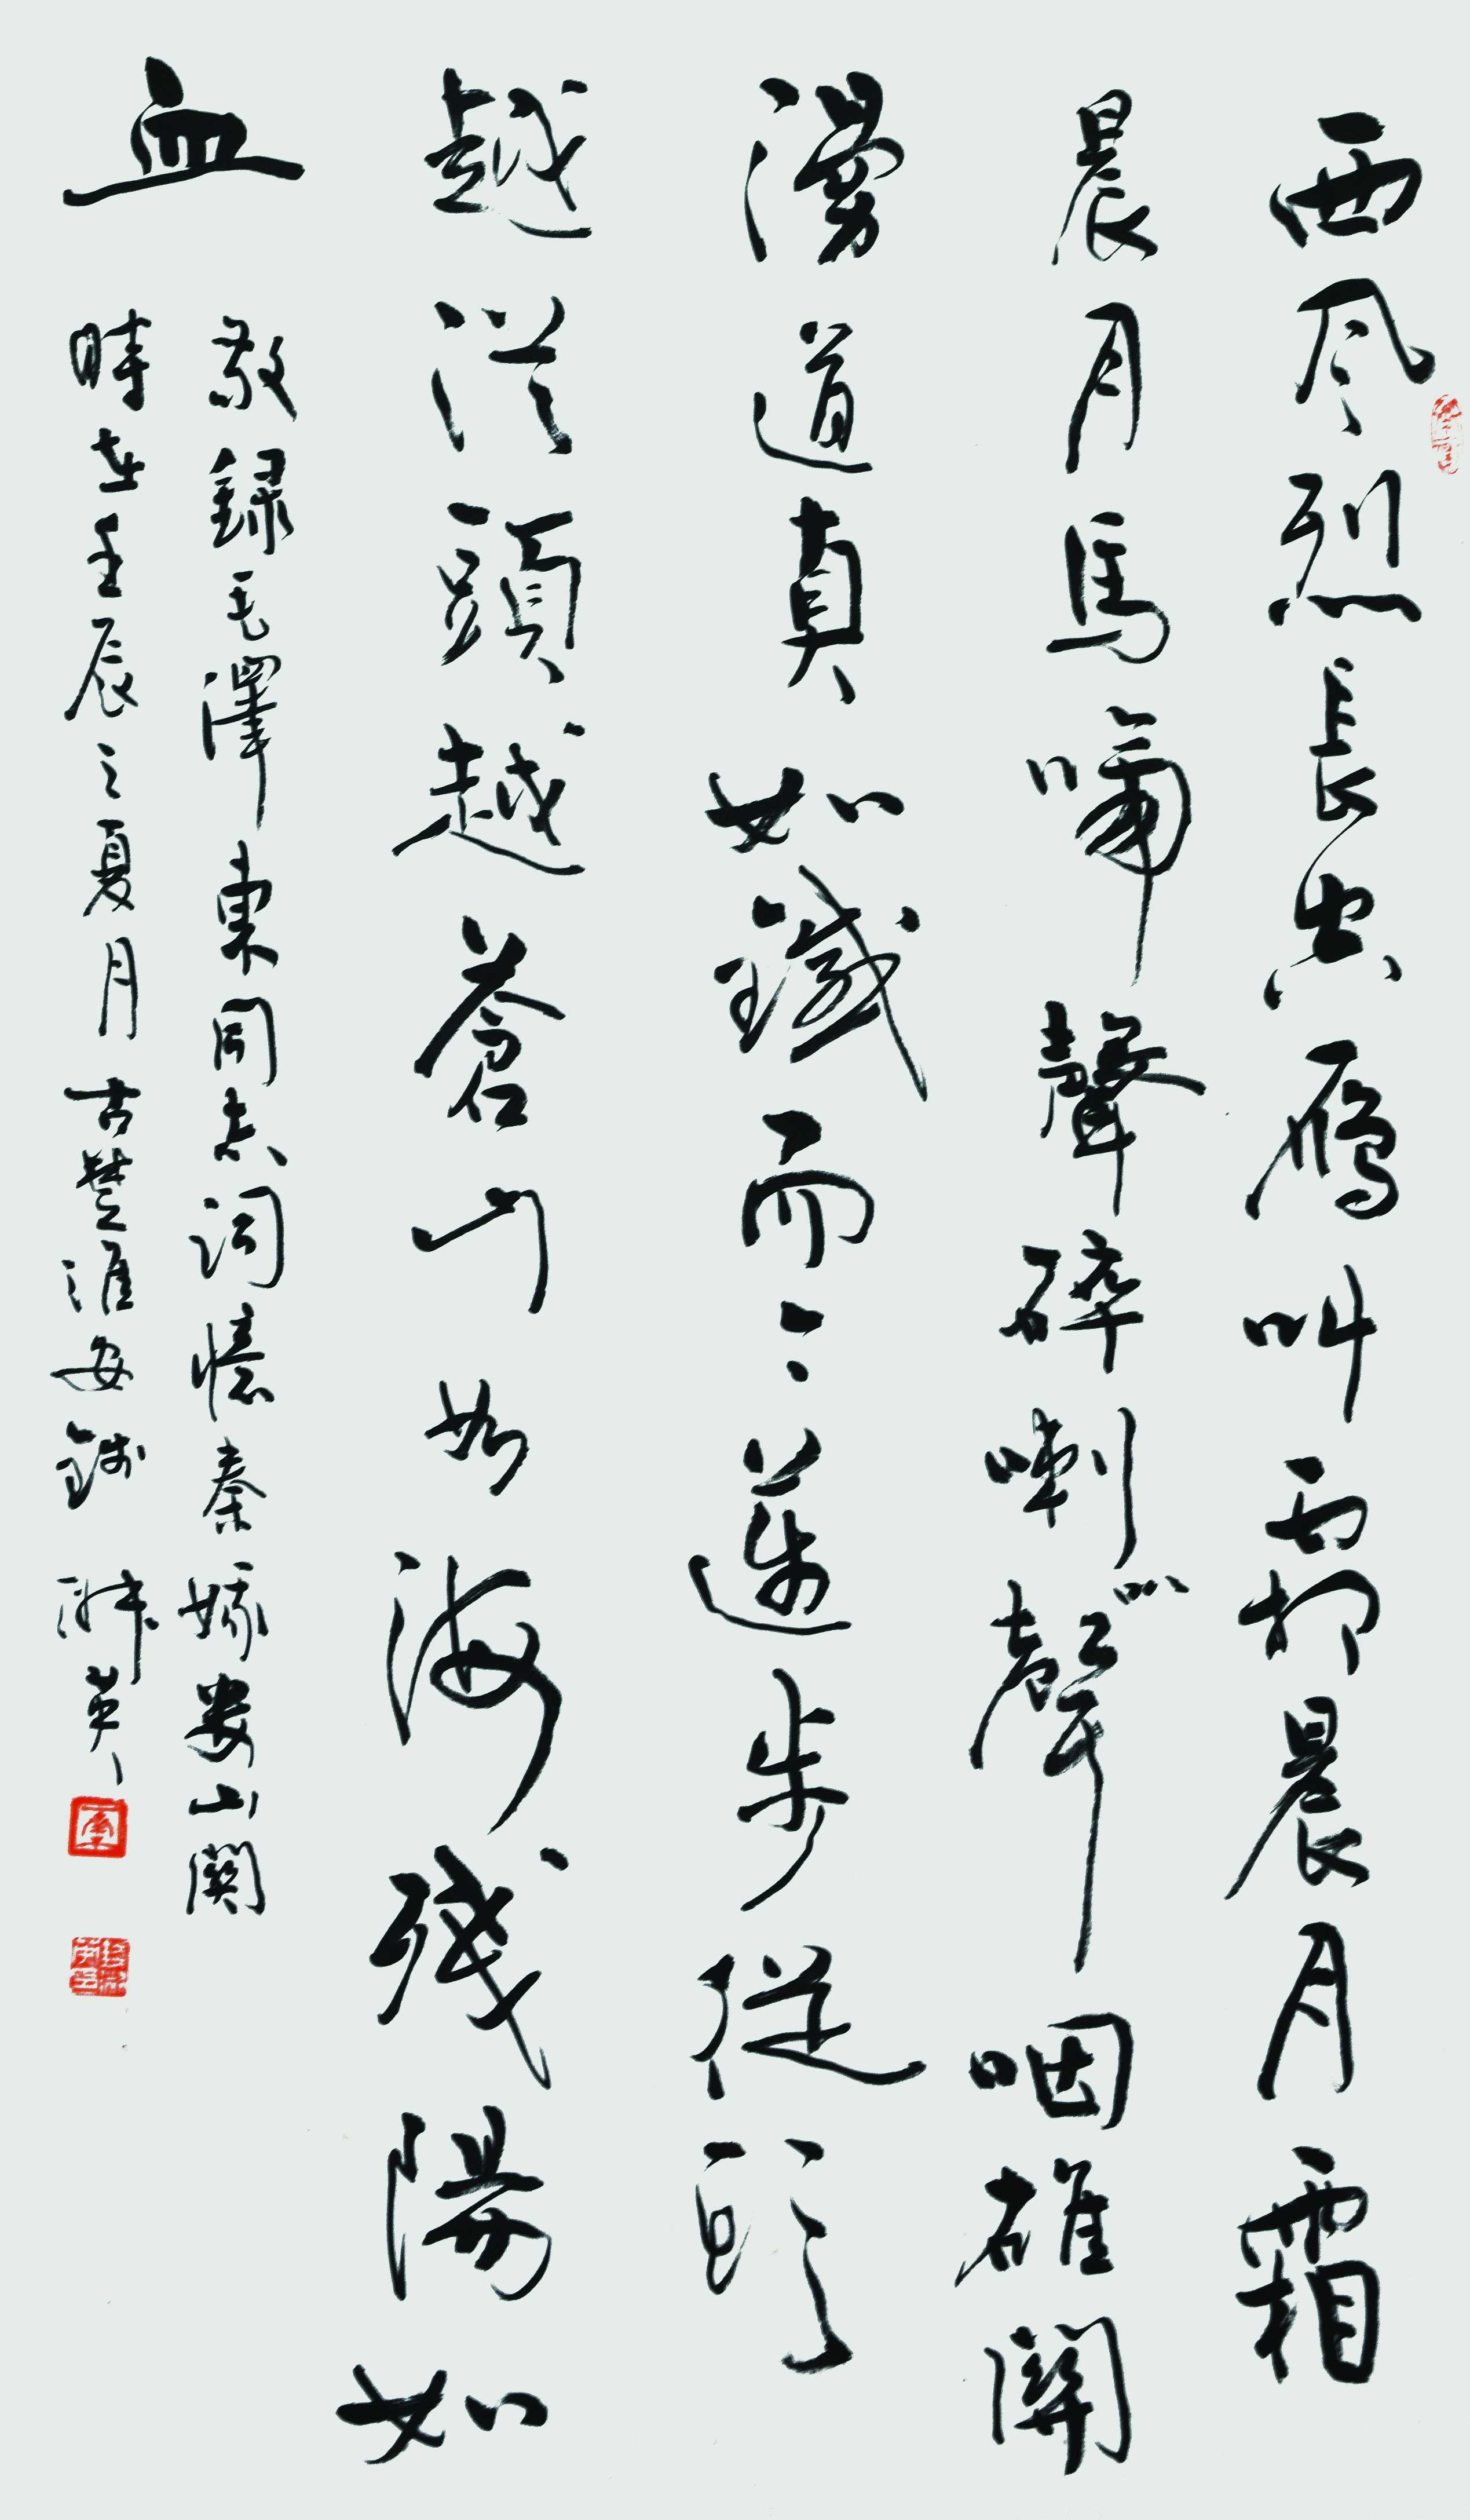 西风烈長空雁叫霜晨月霜
晨月馬啼聲碎喇叭聲咽雄關
漫道真如鐵而今邁步從頭
越從頭越蒼山如海殘陽如
血
敬録毛澤東同志词憶秦娥婁山関
時在壬辰之夏月古楚淮安